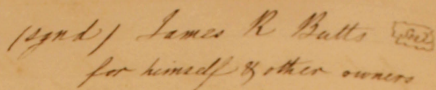 (sgnd) James R Butts Seal
for himself & other owners